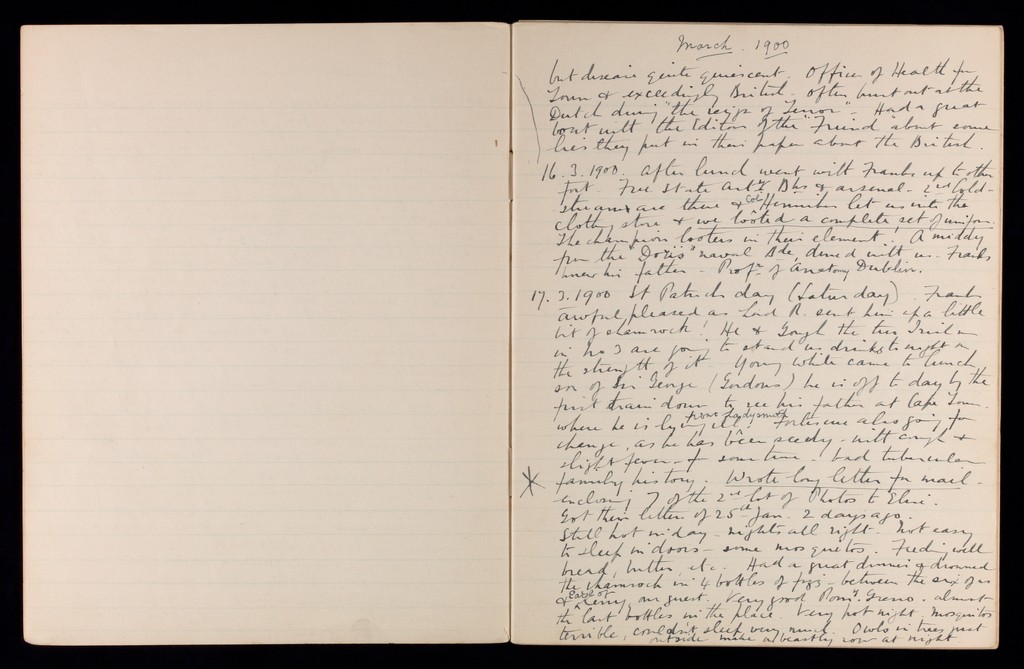 March. 1900
but disease quite quiescent. Officer of Health for
Town & exceedingly British. Often burst out at the
Dutch during "the reign of Terror". Had a great
bout with the Editor of the "Friend" about some
lies they put in their paper about the British.
16. 3. 1900. After lunch went with Franks up to other
fort. Free State Arty Bks & arsenal - 2nd Cold-
streams are there & Col Henniker let us into the
clothing store & we looted a complete set of uniform.
The champion looters in their element. A middy
from the "Doris" naval Bde, dined with us. Franks
knew his father - Profr. of Anatomy Dublin.
17. 3. 1900 St Patricks day (Saturday). Franks
awful pleased as Lord R. sent him up a little
bit of shamrock! He & Gough the two Irishmen
in No 3 are going to stand us drinks to night on
the strength of it. Young White came to lunch,
son of Sir George (Gordons) he is off to day by the
first train down to see his father at Cape Town.
where he is lying ill from Ladysmith. Fortescue also going for
change, as he has been seedy - with cough &
slight fever - of some time - bad tubercular
family history. Wrote long letter for mail -
enclosing 7 of the 2nd lot of Photos to Elsie.
Got their letter of 25th Jan. 2 days ago.
Still hot in day - nights all right. Not easy
to sleep in doors - some mosquitos. Feeding well
bread, butter, etc. Had a great dinner & drowned
the shamrock in 4 bottles of fizz - between the six of us
& Earl of Kerry our guest. Very good Pomy. Greno. almost
the last bottles in the place. Very hot night, mosquitos
terrible, couldn't sleep very much. Owls in trees just
outside make a beastly row at night